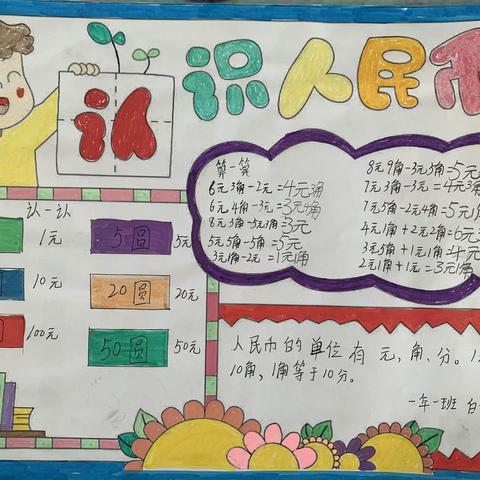 认识人民币
算算
6元3角-2元=4元3角
6元4角-3元=3元4角
8元3角-5元3角=3元
5元5角-5角=5元
3元1角-2元=1元1角
8元9角-3元9角=5元
7元3角-3元=4元3角
7元5角-2元4角=5元1角
4元1角+2元2角=6元3
3元5角+1元1角=4元
2元1角+1元=3元1角
认一认
1元
5圆 5元
10元
20圆 20元
100元
50圆 50元
人民币的单位有元,角、分。1
10角,1角等于10分。
一年一班 白